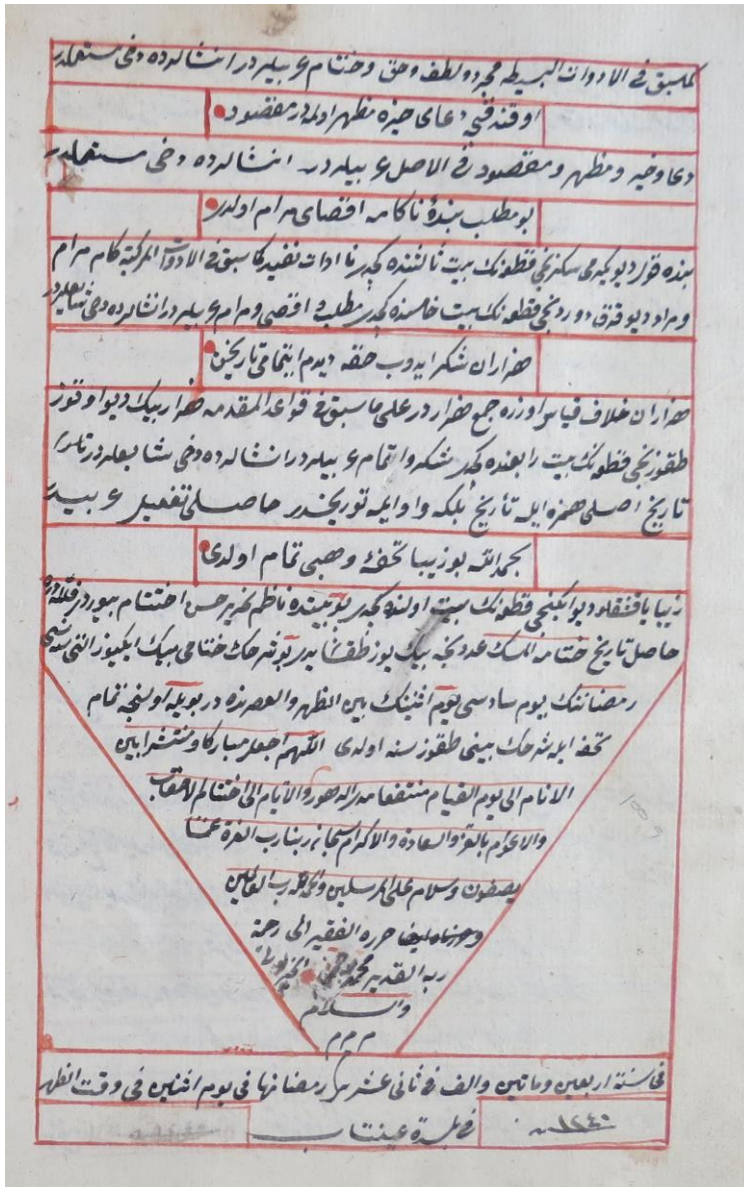 كما سبق في الادوات البسيطه مجرد ولطف وحق وختام ع بيله در انشالرده دخی مستعملدر
اوقندقجه دعای خیره مظهر اوله در مقصود
دعا وخیر ومظهر ومقصود في الاصل ع بيله در انشالرده دخی مستعملدر
بو مطلب بندۀ ناكامه اقصای مرام اولدر
بنده قول ديو يكرمی سكزنجی قطعه نك بيت ثالثنده كچدی نا ادات نفيدر كما سبق في الادوات المركبة كام مرام
ومراد ديو قرق دوردنجی قطعه نك بيت خامسنده كچدی مطلب و اقصی ومرام ع بيله در انشالرده دخی شايعلردر
هزاران شكر ايدوب حقه ديدم اتمامی تاريخن
هزاران خلاف قياس اوزره جمع هزار در علی ما سبق في قواعد المقدمه هزار بيك ديو اوتوز
طقوزنجی قطعه نك بيت رابعنده كچدی شكر و اتمام ع بيله در انشالرده دخی شايعلردر
تاريخ اصلی همزه ايله تأريخ بلكه واو ايله توريخدر حاصلی تفعيل ع بيدر
بحمد الله بو زيبا تحفۀ وهبی تمام اولدی
زيبا ياقشقلو ديو ايكنجی قطعه نك بيت اولنده كچدی بو بيتده ناظم تحرير حسن اختتام بيورديلر
حاصل تاريخ ختامه المسك عددنجه بيك يوز طقسان يدی بو شرحك ختامی بيك ايكيوز التی سنه سی
رمضاننك يوم سادسی يوم اثنينك بين الظهر والعصرنده در بويله اولنجه تمام
تحفه ايله شرحك بينی طقوز سنه اولدی اللهم اجعله مباركا ومنتشرا بين
الانام الی يوم القيام منتفعا مر الدهور والايام الی اختتام الاعقاب
والاعوام بالعز والسعادة والاكرام سبحان ربنا رب العزة عما
يصفون وسلام علی المرسلين والحمد لله رب العالمين
حرره الفقير الی رحمة
ربه القدير محمد
والسلام
م م م
في سنة اربعين ومأتين والف في ثانی عشر من رمضانها في يوم اثنين في وقت الظهر
في بلدة عينتاب
سنه ١٢٤٠